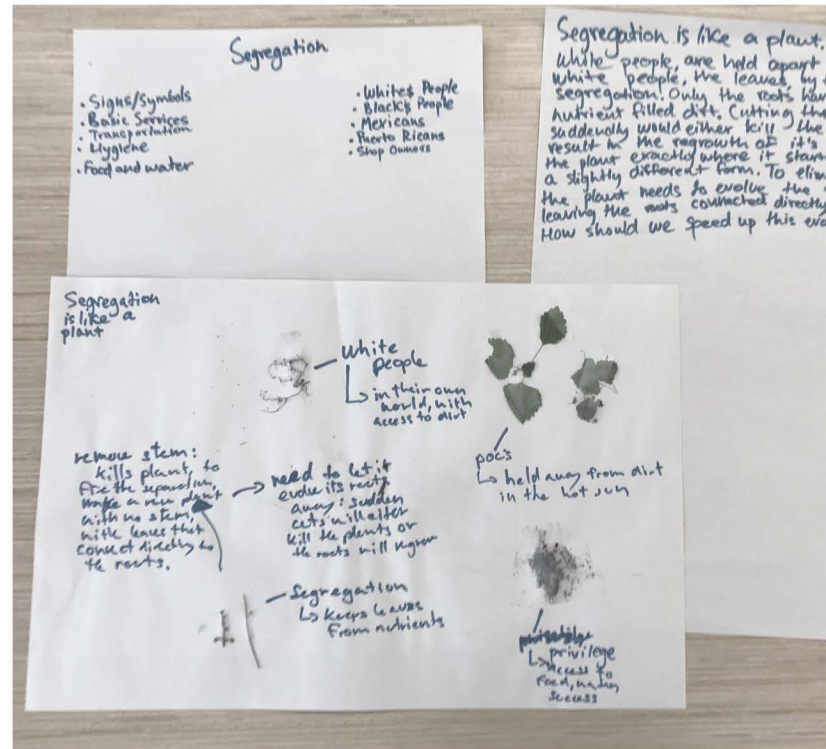 Segregation
• Signs/Symbols
• Basic Services
• Transportation
• Hygiene
• Food and water
• Whites People
• Blacks People
• Mexicans
• Puerto Ricans
• Shop Owners
Segregation is like a plant.
White people, are held apart
white people, the leaves, by
segregation. Only the roots
nutrient filled dirt. Cutting
suddenally would either kill the
result in the regrowth of it's
the plant exactly where it
a slightly different form. To
the plant needs to evolve the
leaving the roots connected directly
How should we speed up this
Segregation
is like a
plant
White
people
in their own
world, with
access to dirt
poc's
held away from dirt
in the hot sun
remove stem:
kills plant, to
fix the separation,
make a new plant
with no stem,
with leaves that
connect directly to
the roots.
need to let it
evolve its roots
away: sudden
cuts will either
kill the plants or
the roots will regrow
Segregation
keeps leaves
from nutrients
privilege
access to
food, water,
success